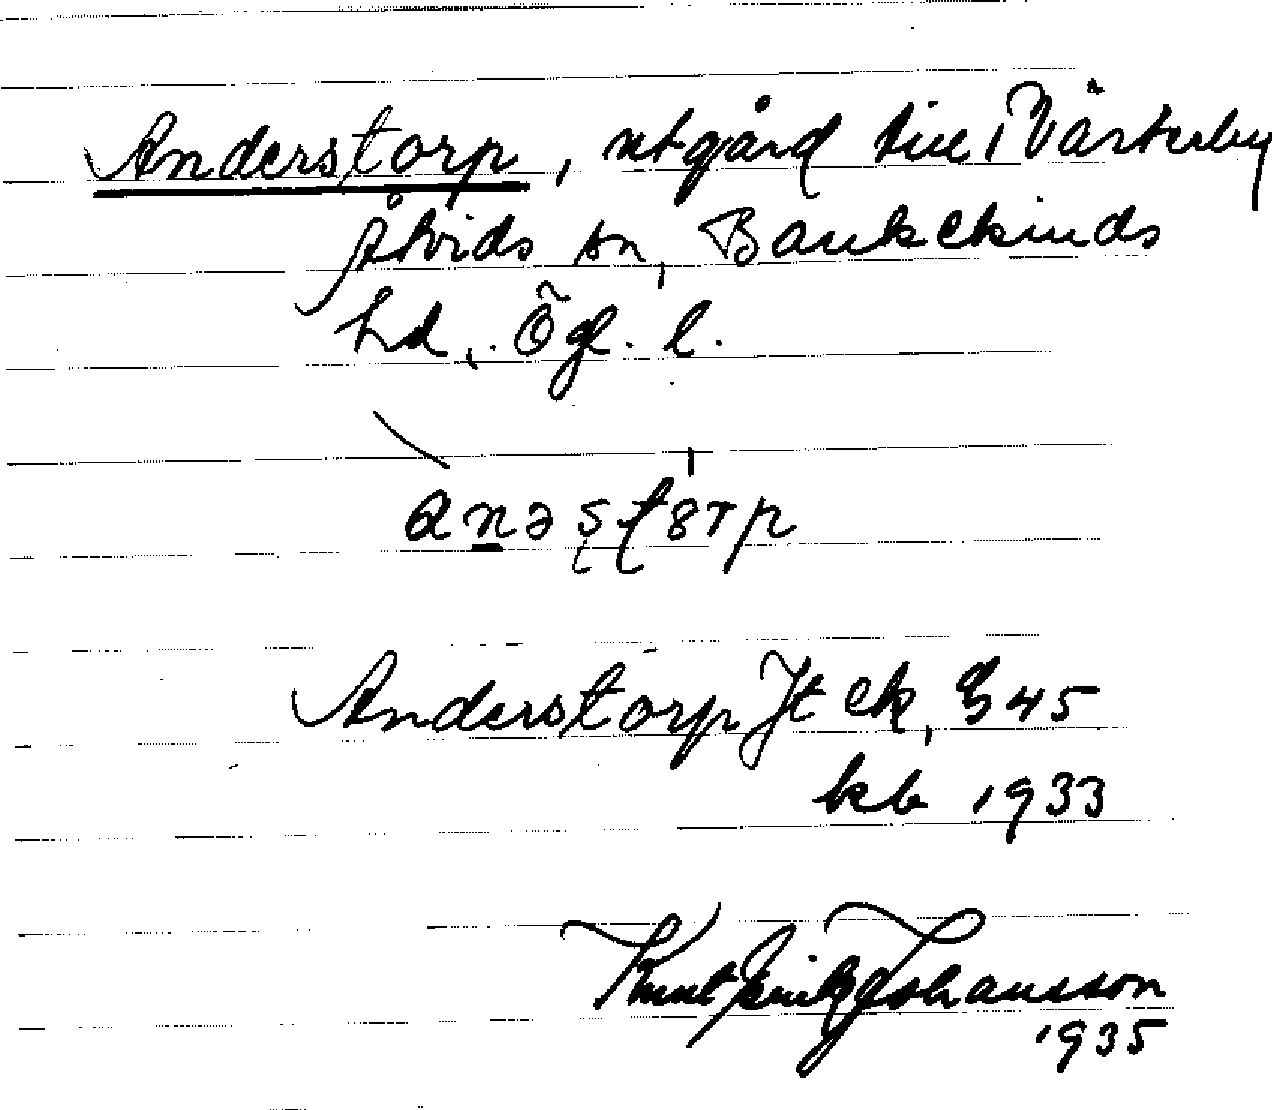 Anderstorp, utgård till Västerby
Åtvids sn, Bankekinds
hd, Ögl. l.
anəst8rp
Anderstorp Jt ek, G45
kb 1933
Knut Fritz Johansson
1935